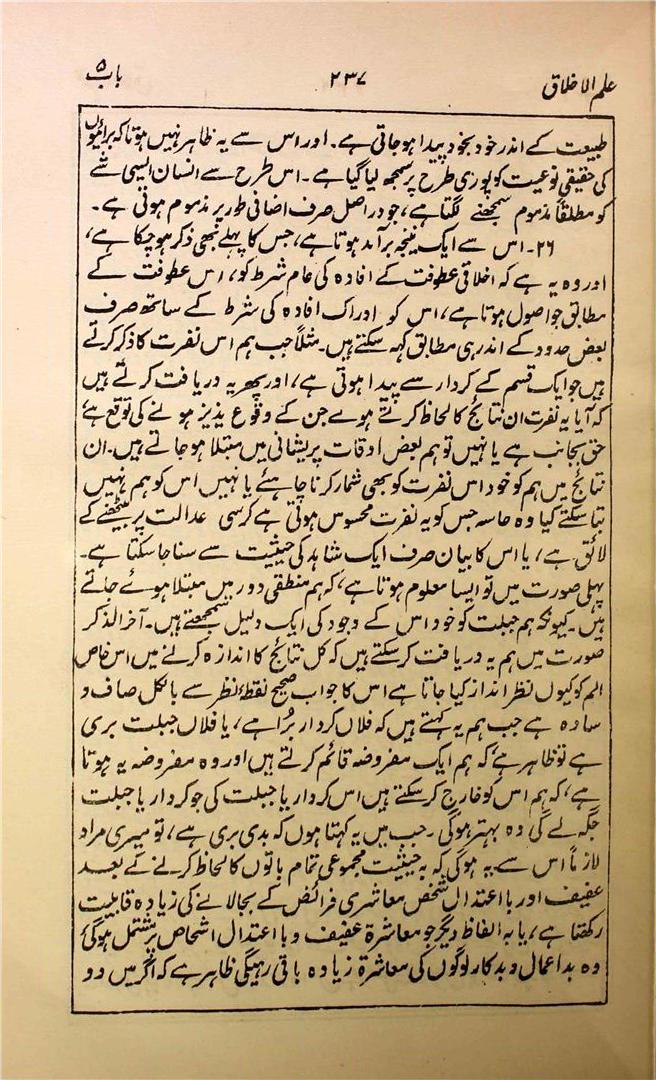 علم الاخلاق ۲۳۷ باب ۵
طبیعت کے اندر خود بخود پیدا ہو جاتی ہے۔ اور اس سے یہ ظاہر نہیں ہوتا کہ برائیوں
کی حقیقی نوعیت کو پوری طرح پر سمجھ لیا گیا ہے۔ اس طرح سے انسان ایسی شے
کو مطلقاً مذموم سمجھنے لگتا ہے، جو دراصل صرف اضافی طور پر مذموم ہوتی ہے۔
۲۶۔ اس سے ایک نتیجہ برآمد ہوتا ہے، جس کا پہلے بھی ذکر ہو چکا ہے،
اور وہ یہ ہے کہ اخلاقی عطوفت کے افادہ کی عام شرط کو، اس عطوفت کے
مطابق جو اصول ہوتا ہے، اس کو اور اک افادہ کی شرط کے ساتھ صرف
بعض حدود کے اندر ہی مطابق کہہ سکتے ہیں۔ مثلاً جب ہم اس نفرت کا ذکر کرتے
ہیں جو ایک قسم کے کردار سے پیدا ہوتی ہے، اور پھر یہ دریافت کرتے ہیں
کہ آیا یہ نفرت ان نتائج کا لحاظ کرتے ہوے جن کے وقوع پذیز ہونے کی توقع ہے
حق بجانب ہے یا نہیں تو ہم بعض اوقات پریشانی میں مبتلا ہو جاتے ہیں۔ ان
نتائج میں ہم کو خود اس نفرت کو بھی شمار کرنا چاہئے یا نہیں اس کو ہم نہیں
بتا سکتے کیا وہ حاسہ جس کو یہ نفرت محسوس ہوتی ہے کرسی عدالت پر بیٹھنے کے
لائق ہے، یا اس کا بیان صرف ایک شاہد کی حیثیت سے سنا جا سکتا ہے۔
پہلی صورت میں تو ایسا معلوم ہوتا ہے، کہ ہم منطقی دور میں مبتلا ہوئے جاتے
ہیں۔ کیونکہ ہم جبلت کو خود اس کے وجود کی ایک دلیل سمجھتے ہیں۔ آخر الذکر
صورت میں ہم یہ دریافت کر سکتے ہیں کہ کل نتائج کا اندازہ کرنے میں اس خاص
الم کو کیوں نظر انداز کیا جاتا ہے اس کا جواب صحیح نقطۂ نظر سے بالکل صاف و
سادہ ہے جب ہم یہ کہتے ہیں کہ فلاں کردار برُا ہے، یا فلاں جبلت بری
ہے تو ظاہر ہے کہ ہم ایک مفروضہ قائم کرتے ہیں اور وہ مفروضہ یہ ہوتا
ہے، کہ ہم اس کو خارج کر سکتے ہیں اس کردار یا جبلت کی جو کردار یا جبلت
جگہ لے گی وہ بہتر ہوگی۔ جب میں یہ کہتا ہوں کہ بدی بری ہے، تو میری مراد
لازماً اس سے یہ ہوگی کہ بہ حیثیت مجموعی تمام باتوں کا لحاظ کرنے کے بعد
عفیف اور بااعتدال شخص معاشری فرائض کے بجالانے کی زیادہ قابلیت
رکھتا ہے، یا بہ الفاظ دیگر جو معاشرۃ عفیف و بااعتدال اشخاص پر مشتمل ہوگی
وہ بداعمال و بدکار لوگوں کی معاشرۃ زیادہ باقی رہیگی ظاہر ہے کہ اگر میں دو